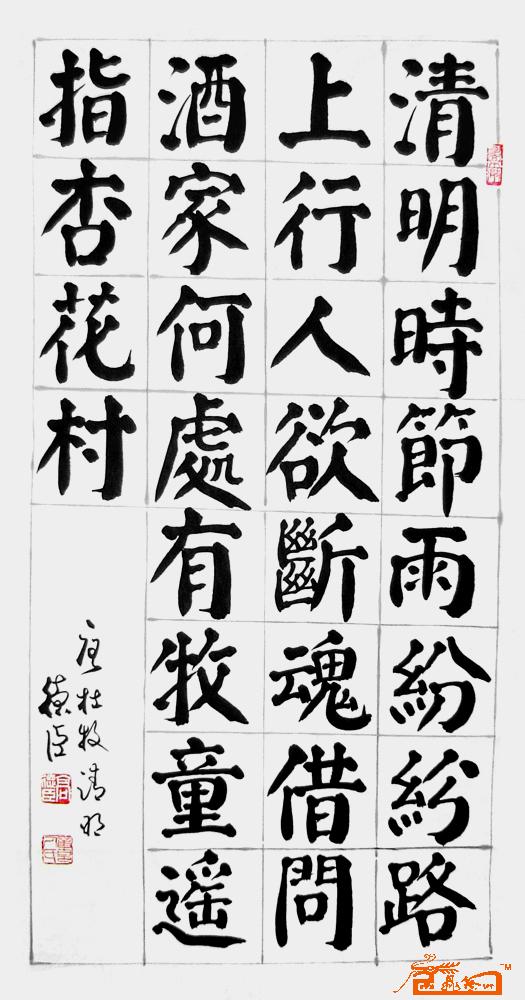 清明時節雨紛紛路
上行人欲斷魂借問
酒家何處有牧童遥
指杏花村
唐杜牧清明
德臣